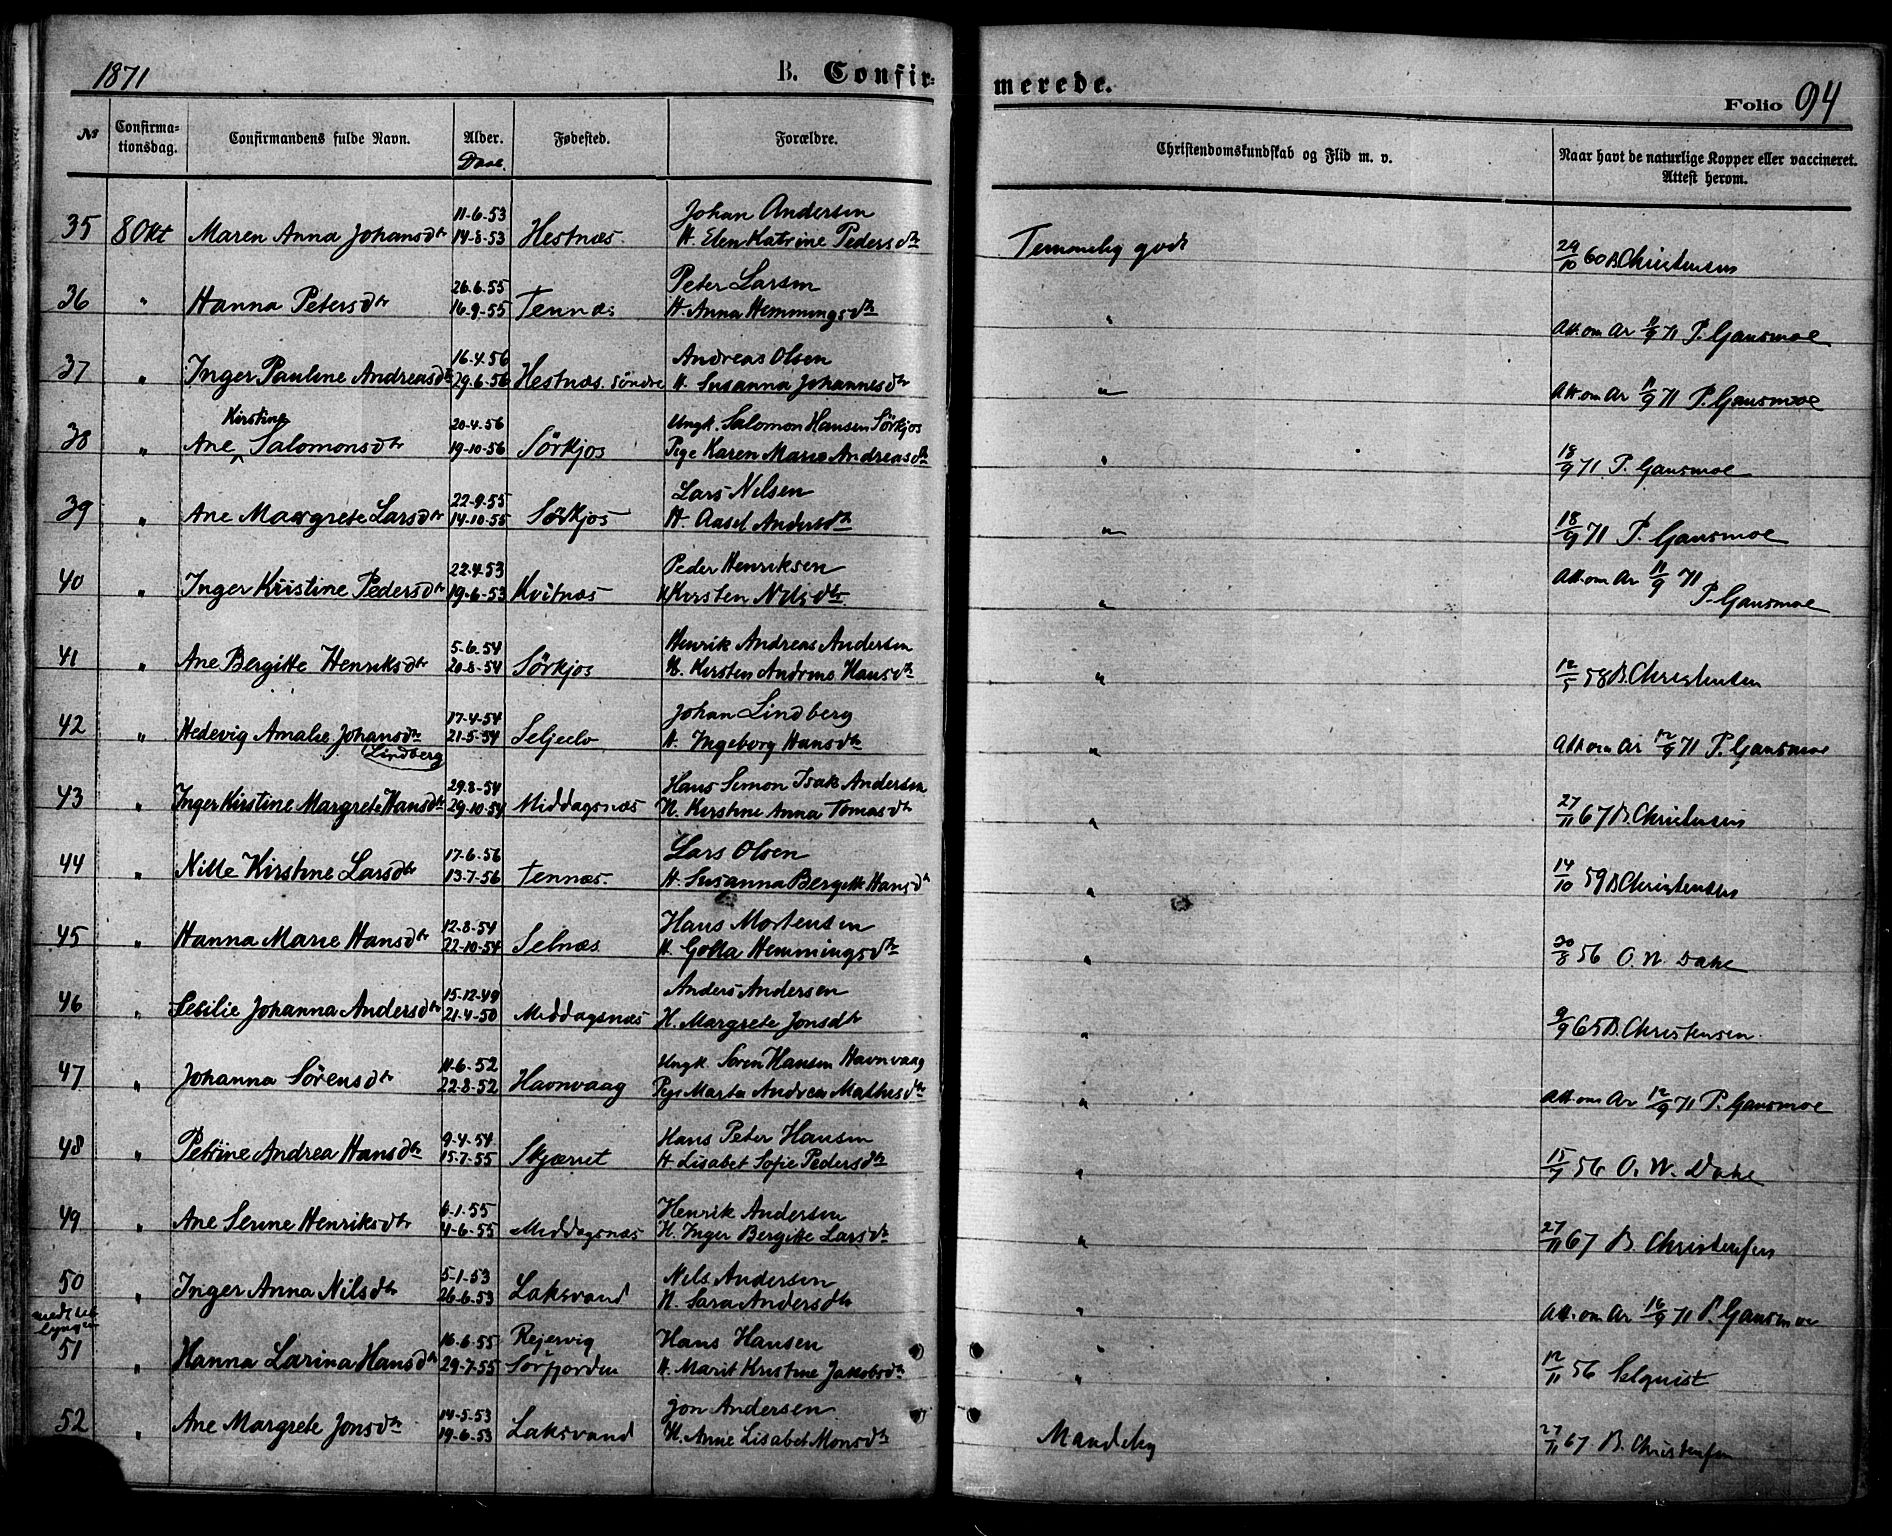 1871
B. Confir-
merede.
Folio 94
№
Confirma-
tionsdag.
Confirmandens fulde Navn.
Alder.
Daab.
Fødested.
Forældre.
Christendomskundskab og Flid m. v.
Naar havt de naturlige Kopper eller vaccineret.
Attest herom.
11-6-53 Johan Andersen
35 8 Okt Maren Anna Johansdtr 14-8-53 Hestnæs. H. Elen Katrine Pedersdtr Temmelig godt 29/10 60 B Christensen
26-6-55 Peter Larsen
36 " Hanna Petersdtr 16-9-55 Tennæs H. Anna Hemmingsdtr " Att. om Ar 11/9 71 P. Gausmoe
16-4-56 Andreas Olsen
37 " Inger Pauline Andreasdtr 29-6-56 Hestnæs. søndre H. Susanna Johannesdtr " Att om Ar 11/9 71 P. Gausmoe
Kirstine 20-4-56 Ungk. Salomon Hansen Sörkjos
38 " Ane Salomonsdtr 19-10-56 Sörkjos Pige Karen Marie Andreasdtr " 18/9 71 P. Gausmoe
22-9-55 Lars Nilsen
39 " Ane Margrete Larsdtr 14-10-55 Sörkjos H. Aasel Andersdtr " 18/9 71 P. Gausmoe
22-4-53 Peder Henriksen
40 " Inger Kristine Pedersdtr 19-6-53 Kvitnæs H Kirsten Nilsdtr " Att. om Ar 11/9 71
P. Gausmoe
5-6-54 Henrik Andreas Andersen
41 " Ane Bergitte Henriksdtr 20-8-54 Sörkjos H. Kirsten Andrine Hansdtr " 12/5 58 B. Christensen
17-4-54 Johan Lindberg
42 " Hedevig Amalie Johansdtr 21-5-54 Seljeelv H. Ingeborg Hansdtr " Att om Ar 12/9 71 P. Gausmoe
Lindberg
29-8-54 Hans Simon Isak Andersen
43 " Inger Kirstine Margrete Hansdtr 29-10-54 Middagsnæs H. Kirstine Anna Tomasdtr " 27/11 67 B. Christensen
17-6-56 Lars Olsen
44 " Nille Kirstine Larsdtr 13-7-56 Tennæs. H. Susanna Bergitte Hansdtr " 14/10 59 B Christensen
12-8-54 Hans Mortensen
45 " Hanna Marie Hansdtr 22-10-54 Selnæs H. Golla Hemmingsdtr " 30/8 56 O. W. Dahl
15-12-49 Anders Andersen
46 " Sesilie Johanna Andersdtr 21-4-50 Middagsnæs H. Margrete Jonsdtr " 9/9 65 B. Christensen.
11-6-52 Ungk. Sören Hansen Havnvaag
47 " Johanna Sörensdtr 22-8-52 Havnvaag Pige Marta Andrea Mathisdtr " Att. om Ar 12/9 71 P. Gausmoe
9-4-54 Hans Peter Hansen
48 " Petrine Andrea Hansdtr 15-7-55 Skjæret H Lisabet Sofie Pedersdtr " 15/9 56 O. W. Dahl
6-1-55 Henrik Andersen
49 " Ane Serine Henriksdtr 4-6-55 Middagsnæs H. Inger Bergitte Larsdtr " 27/11 67 B. Christensen
5-1-53 Nils Andersen
50 " Inger Anna Nilsdtr 26-6-53 Laksvand H. Sara Andersdtr " Att. om Ar 16/9 71 P. Gausmoe
16-6-55 Rejervig Hans Hansen
51 " Hanna Larina Hansdtr 29-7-55 Sörfjorden H. Marit Kristine Jakobsdtr " 12/11 56 Selquist
14-5-53 Jon Andersen
52 " Ane Margrete Jonsdtr 19-6-53 Laksvand H. Anne Lisabet Monsdtr Maadelig 27/11 67 B. Christensen